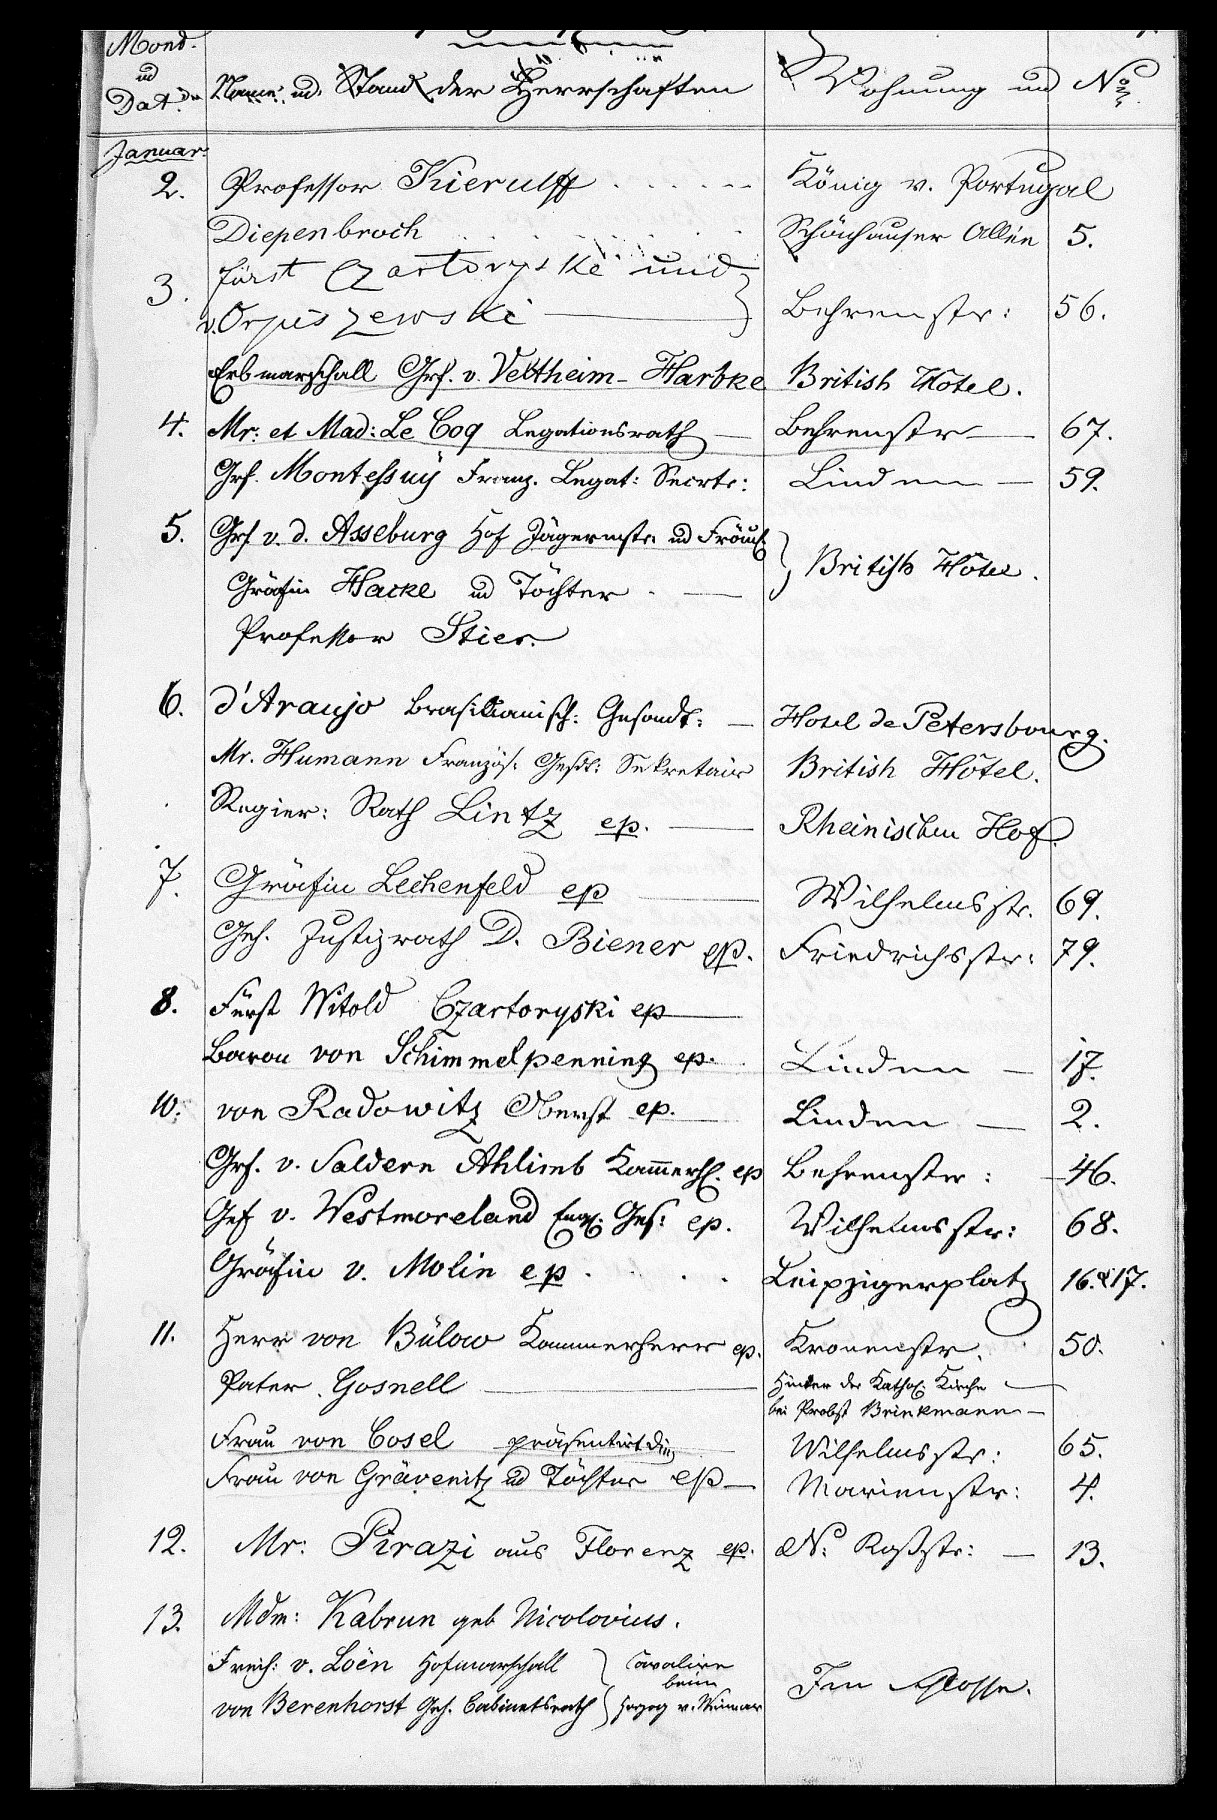 Mond.
ud
Dat.
Name ud. Stand der Herrschaften Wohnung und No
Januar:
2. Professor Kierulff König v. Portugal
Diepenbroch Schönhauser Allée 5.
3. Fürst Czartoryski und
v. Orpiszewski Behrenstr: 56.
Erbmarschall Grf. v. Veltheim-Harbke British Hôtel.
4. Mr: et Mad: Le Coq Legationsrath Behrenstr 67.
Grf. Montessuy Franz. Legat: Secrtr: Linden 59.
5. Grf v. d. Asseburg Hof Jägermstr ud
Gräfin Hacke ud Töchter British Hôtel.
Professor Stier.
6. d'Araujo Brasilianisch: Gesandt: Hotel de Petersbourg.
Mr. Humann Französ: Gesdt: Sekretair British Hôtel.
Regier: Rath Lintz ep. Rheinischen Hof.
7. Gräfin Lechenfeld ep Wilhelmsstr. 69.
Geh. Justizrath D. Biener ep. Friedrichsstr: 79.
8. Fürst Witold Czartoryski ep
Baron von Schimmelpenning ep. Linden 17.
10. von Radowitz Oberst ep. Linden 2.
Grf. v. Saldern Ahlimb Kammerh. ep Behrenstr: 46.
Grf v. Westmoreland Engl. Ges: ep. Wilhelmsstr: 68.
Gräfin v. Molin ep. Leipzigerplatz 16. & 17.
11. Herr von Bülow Kammerherr ep. Kronenstr. 50.
Pater Gosnell Hinter der Kathol. Kirche
bei Probst Brinkmann
Frau von Cosel präsentirt Wilhelmsstr: 65.
Frau von Grävenitz ud Töchter ep Marienstr: 4.
12. Mr: Pirazi aus Florenz ep. N: Roßstr: 13.
13. Mdm: Kabrun geb Nicolovius.
Freih: v. Loën Hofmarschall Cavaliere
beim
von Berenhorst Geh. Cabinetsrath Herzog v. Weimar Im Schlosse.